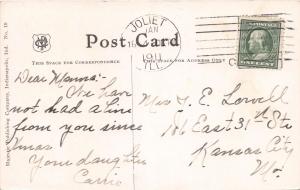 Majestic Publishing Company, Indianapolis, Ind. No. 19
Post Card
THIS SPACE FOR CORRESPONDENCE
THIS SPACE FOR ADDRESS ONLY
JOLIET
JAN
16
1911
ILL.
Dear Mamma:-
We have
not had a line
from you since
Xmas.
Your daughter
Carrie
Mrs J. E. Lowell
East 31st St
Kansas City
Mo.